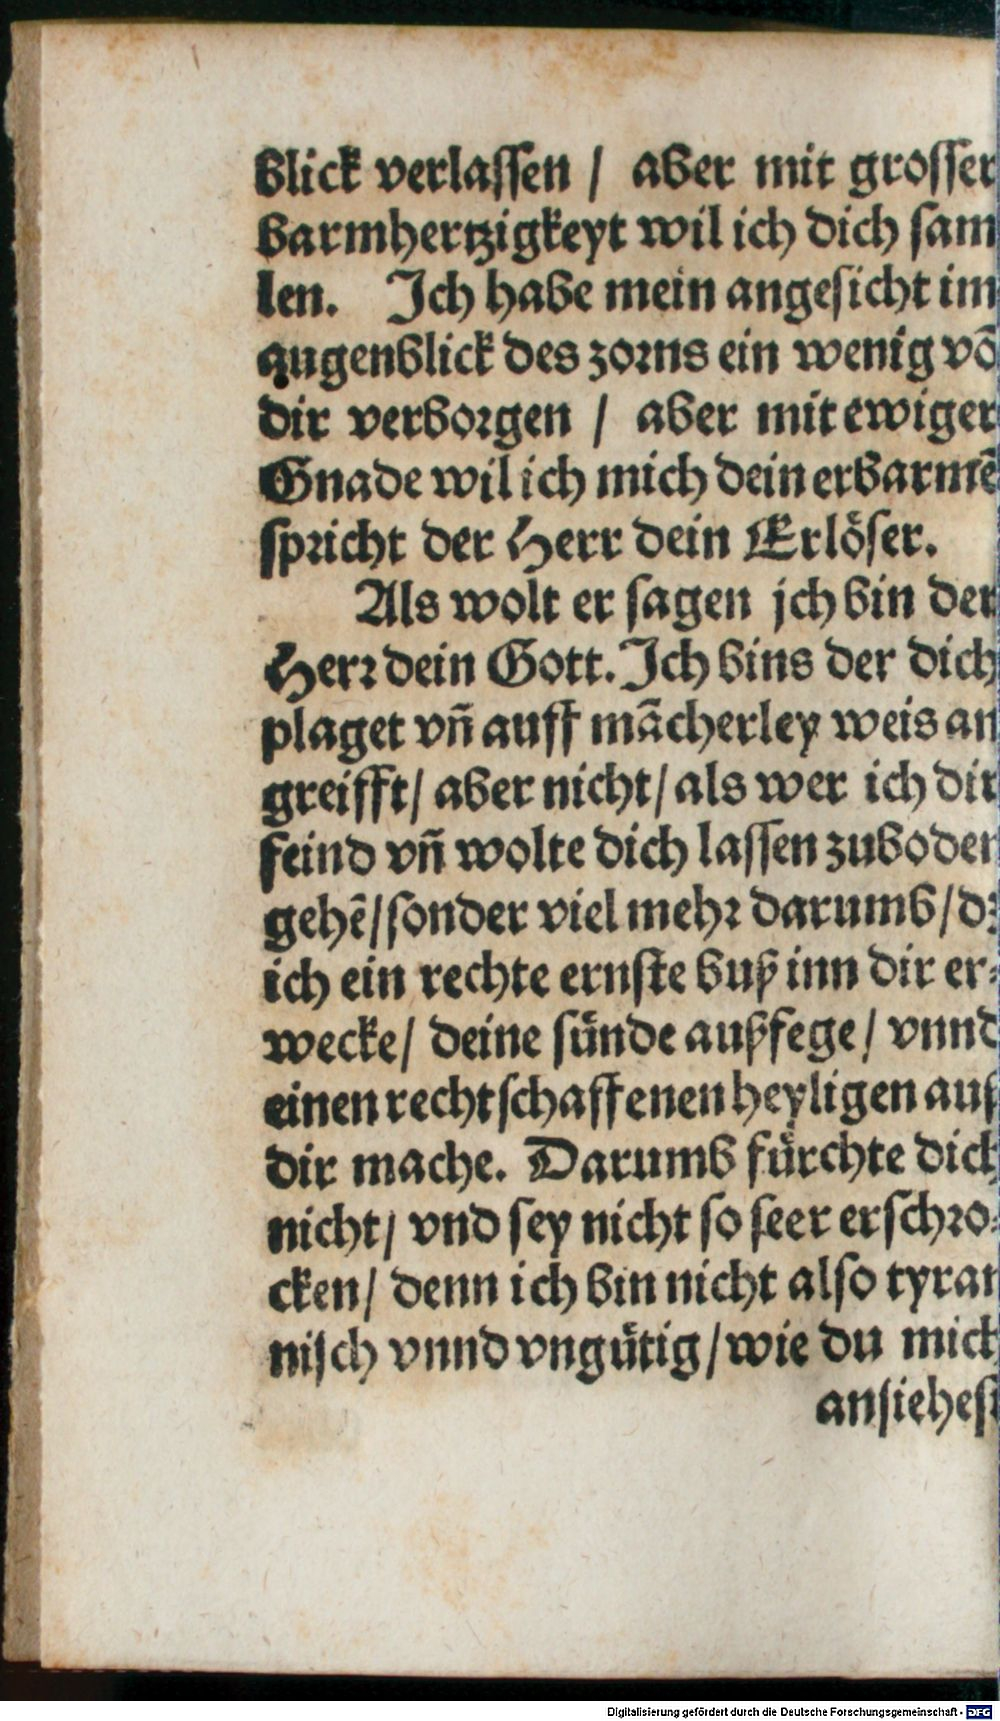 blick verlassen / aber mit grosser
barmhertzigkeyt wil ich dich sam
len. Ich habe mein angesicht im
augenblick des zorns ein wenig võ
dir verborgen / aber mit ewiger
Gnade wil ich mich dein erbarmẽ
spricht der Herr dein Erlöser.
Als wolt er sagen jch bin der
Herr dein Gott. Ich bins der dich
plaget vñ auff mãcherley weis an
greifft / aber nicht / als wer ich dir
feind vñ wolte dich lassen zuboden
gehẽ / sonder viel mehr darumb / dz
ich ein rechte ernste buß inn dir er-
wecke / deine sünde außfege / vnnd
einen rechtschaffenen heyligen auß
dir mache. Darumb fürchte dich
nicht / vnd sey nicht so seer erschro-
cken / denn ich bin nicht also tyran
nisch vnnd vngütig / wie du mich
ansiehest
Digitalisierung gefördert durch die Deutsche Forschungsgemeinschaft - DFG